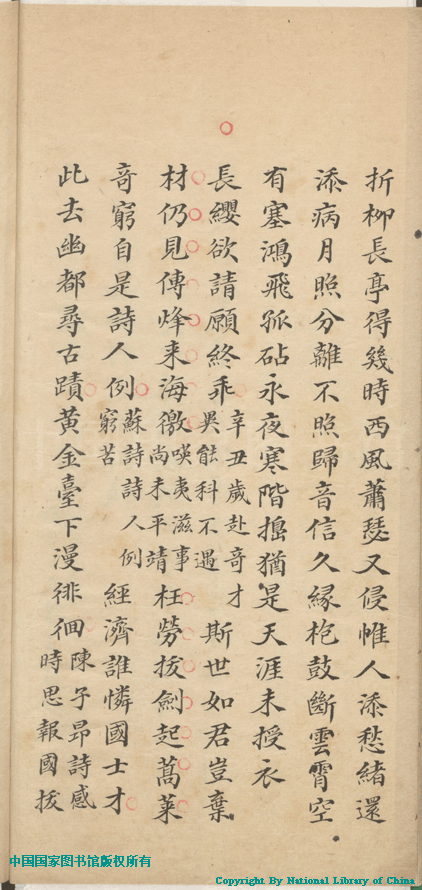 折柳長亭得幾時西風蕭瑟又侵帷人添愁緒還
添病月照分離不照歸音信久緣枹鼓斷雲霄空
有塞鴻飛孤砧永夜寒階搗猶是天涯未授衣
長纓欲請願終乖
辛丑歲赴奇才
吳能科不遇
斯世如君豈棄
材仍見傳烽来海徼
𠸄夷滋事
尚未平靖
枉勞拔劍起蒿萊
竒窮自是詩人例
蘇詩詩人例
窮苦
經濟誰憐國士才
此去幽都尋古蹟黄金臺下漫徘徊
陳子昂詩感
時思報國拔
中国国家图书馆版权所有
Copyright By National Library of China